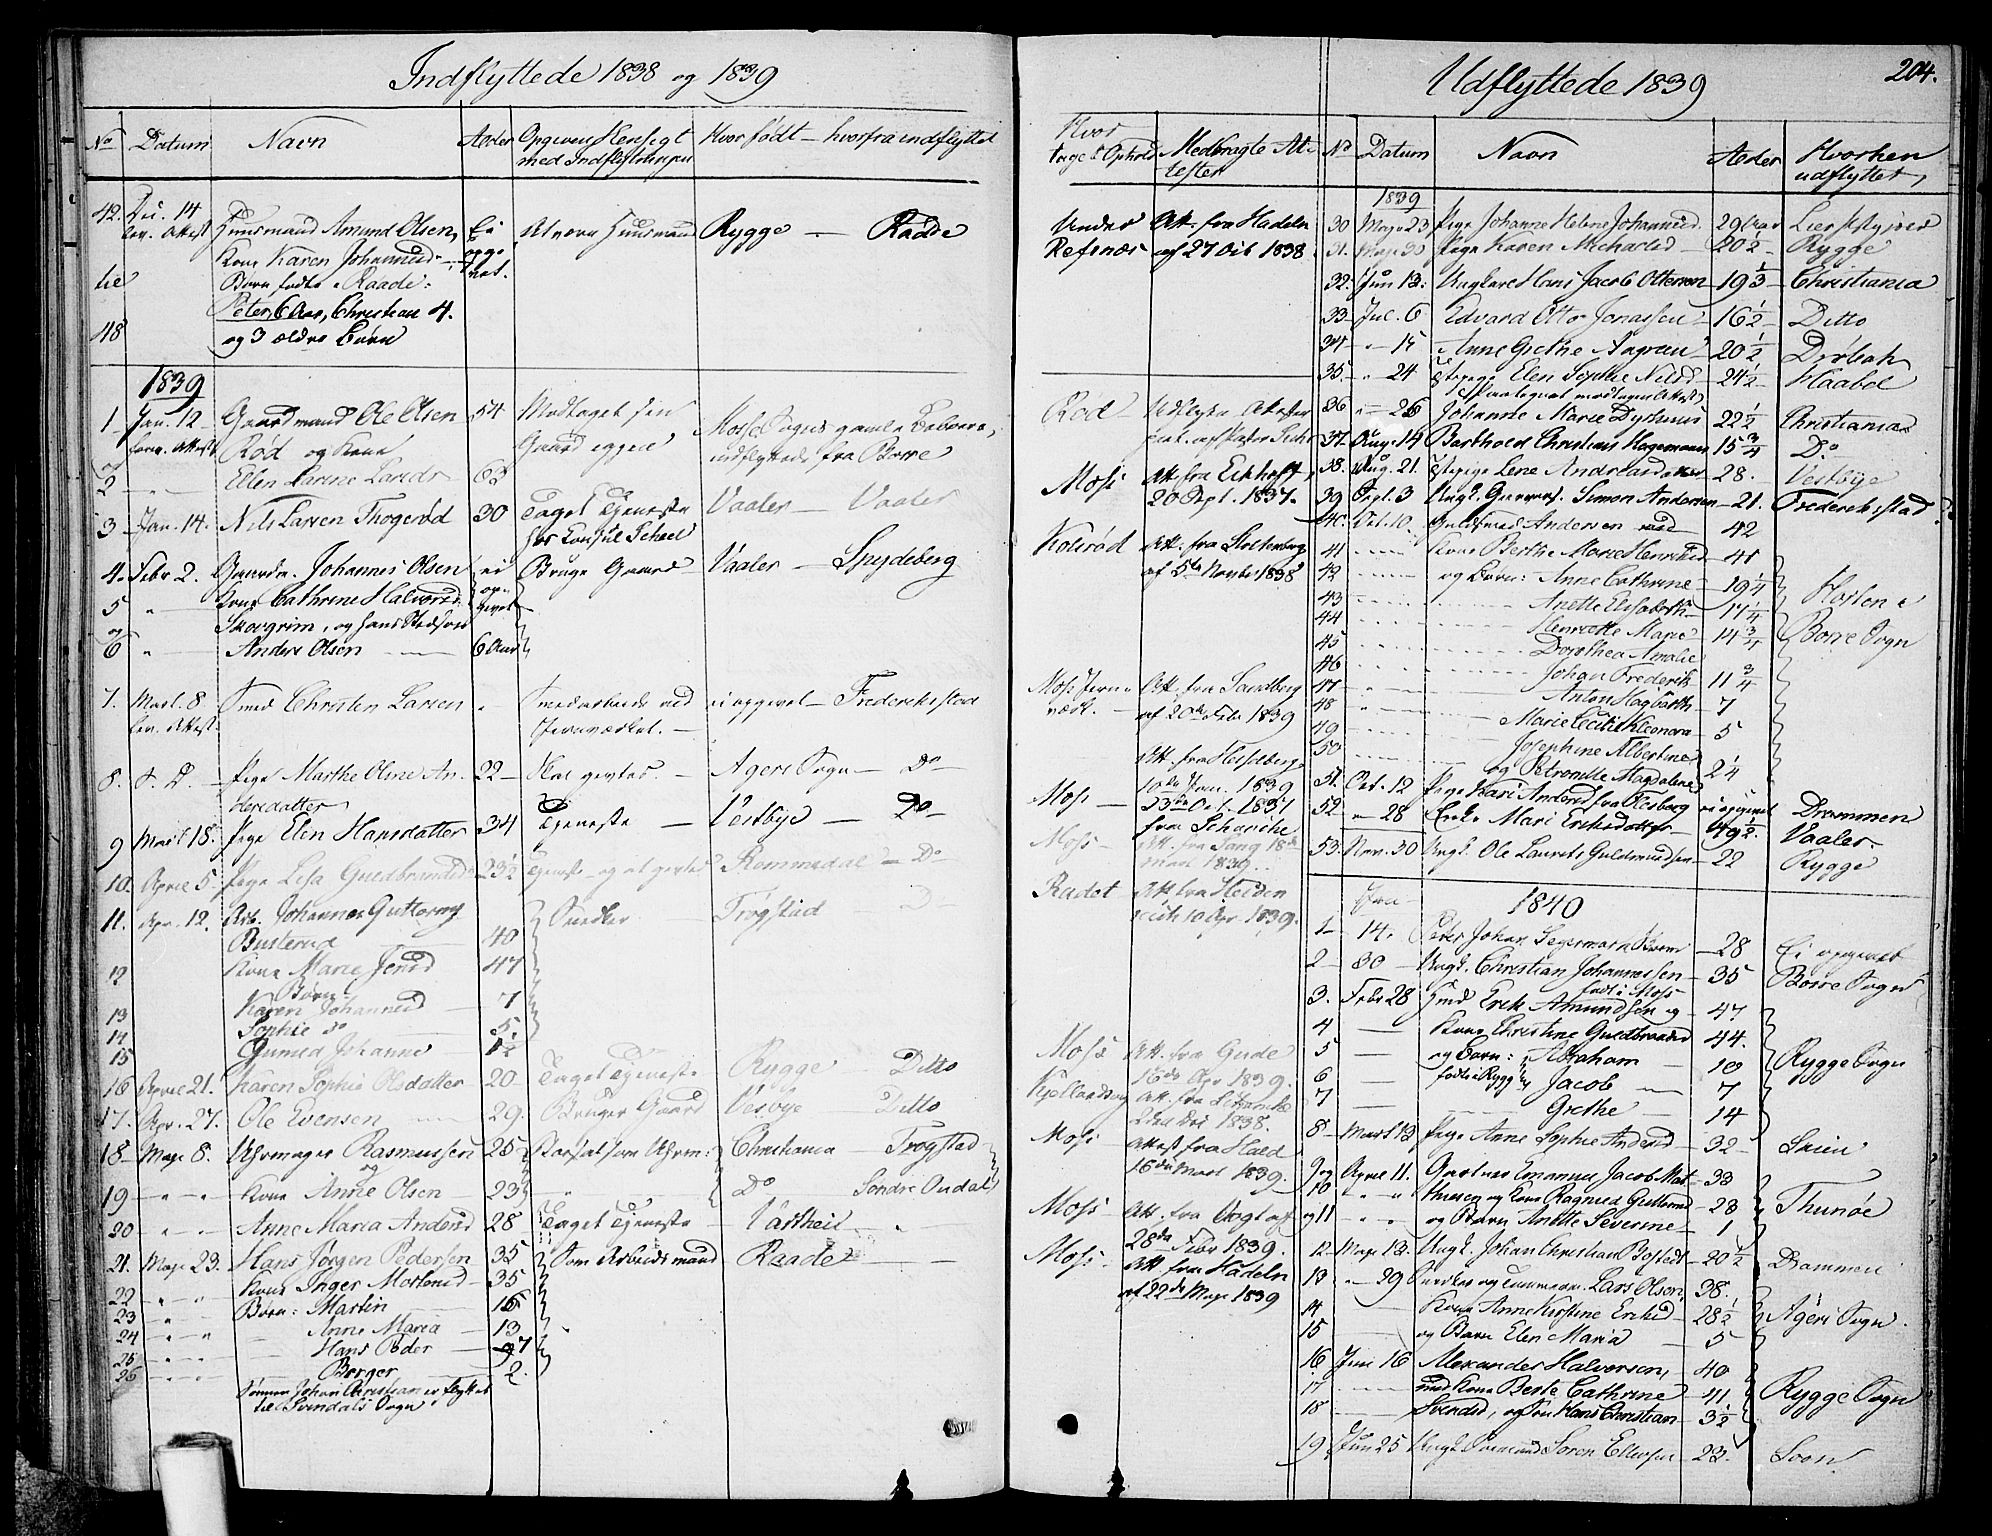 Indflyttede 1838 og 1839
No Datum Navn Alder Opgiven Hensigt Hvor født — hvorfra indflyttet
med Indflytningen
42. Dec. 14 Huusmand Amund Olsen, Ei At være Huusmand Rygge — Raade
lev. Attest Kone Karen Johannesd. opgi
til Børn fødte i Raade: vet.
Peter 6 Aar, Christian 4.
48 og 3 ældre Børn
1839
1 Jan. 12 Gaardmand Ole Olsen 54 Modtaget sin
Rød og Kone Gaard
og indflyttede fra Borre
2 Ellen Larine Larsdr 63
3 Jan. 14. Nils Larsen 30 Taget Tjeneste Vaaler — Vaaler
hos Consul Scheel
4. Febr 2. Gaardm. Johannes Olsen ei Bruge Gaard Vaaler — Spydeberg
5 " Kone Cathrine Halvorsd. op-
og Skovgrim, og hans givet
6 " Anders Olsen 6 Aar
7. Mart. 8 Smed Christen Larsen " Smedarbeide ved ei opgivet — Frederikstad
lev. Attest. Jernværket. —
8. S. D. — Pige Marthe Oline An- 22 — Skal giftes. — Agers Sogn — Do
dersdatter
9 Mart. 18. Pige Elen Hansdatter 34 Tjeneste — Vestbye — Do
10. April 5. Pige Lisa Guldbrandsd. 23½ Tjeneste og at giftes Rommedal — Do
11. Apr. 12. Arb. Johannes Guttorms Snedker Trøgstad D
Busterud 40
12 Kone Marie Jensd 47
Børn:
13 Karen Johannesd — 7
14 Sophie do — 5.
15 Johanne — 1½
16 April 21. Karen Sophie Olsdatter 20 — Taget Tjeneste Rygge — Ditto
17. Apr. 27. Ole Evensen — 29. Bruger Gaard Vestbye — Ditto
18 — Maje 8. Uhrmager Rasmussen 25 Christiania — Trøgstad
og
19 Kone Anne Olsen — 23 Do Søndre Oudal
20 Anne Maria Andersd 28 Taget Tjeneste
21. Maje 23. Hans Jørgen Pedersen 35 Som Arbeidsmand Raade
22 Kone Inger Mortensd — 35
23 Børn: Martin 16
24 Anne Maria — 13
25 Hans Peder — 7
26 Borger — 2.
Sønnen Johan Christian er flyttet
til Svindals Sogn
Udflyttede 1839 204.
Hvor Medbragte At- No Datum Navn Alder Hvorhen
tage Ophold tester udflyttet,
1839
Under Att. fra Hadeln 30 Maje 23 Pige Johanne Helene Johannesd — 29 Aar Lier
Refsnæs af 27 Oct 1838. 31. Maje 30 Pige Karen Michaelsd — 20½ Rygge
32. Jun 13. Ungkarl Hans Jacob Ottersen 19⅓ Christiania
33 Jul. 6 Edvard Otto Jonassen 16½ Ditto
34 " 15 Anne Grethe Aagreen 20½ Drøbak
35. " 24 Pige Elen Sophie Nilsd 24½ Haabøl
Rød 36 " 26 Johanne Marie 22½ Christiania
37 Aug. 14 Barthold Christian Hagemann 15¾ Do
Moss Att. fra Eckhoff 38. Aug. 21. Pige Lene 28. Vestbye
20 Sept. 1837. 39 Sept. 3 Ungk. Simon Andersen — 21. Frederikstad
40. Oct. 10. Andersen 42
Kolsrød Att. fra Stoltenberg 41 Kone Berthe Marie Henriksd 41
af 5te Novbr 1838 42 og Børn: Anne Cathrine — 19¼ Horten i
43 Anette Elisabeth — 17¼
44 Henriette Marie 14¾ Borre Sogn
45 Dorothea Amalie
46 Johan Frederik 11¾
Moss Jern- Att. fra Sandberg 47 Anton Hagbarth — 7
værk. — af 20de Febr 1839 48 Marie Cecilie Eleonora — 5
49 Josephine Albertine
Att. fra Hesselberg 50 og Petronille Magdalene 2¼
Moss 10de Jan. 1839 51. Oct. 12 Pige Kari Andersd fra Flesberg ei opgivet Drammen
23de Oct. 1837 52. " 28 Enke Mari Eriksdatter 49½ Vaaler.
fra Scharche
Moss — Att. fra Lang 18de 53. Nov. 30 Ungk. Ole Laurits Guldmundsen 22 Rygge
Mart 1839.
Radet Att. fra Heiden 1840
reich 10 Apr 1839. Jan
1 — 14. Peter Johan — 28 Ei opgivet
2 — 30 Ungk. Christian Johannessen — 35 Borre Sogn
født i Moss
3. Febr 28 Smed Erik Amundsen og 47
4 Kone Christine Guldbrandsd 44.
Moss Att. fra Gude 5 og Børn: Abraham 10 Rygge Sogn
16de Apr 1839. 6 fødte i Rygge Jacob 7
Kjellandsvig Att. fra 7 Grethe 14
22de Dec 1838. 8 Mart 13 Pige Anne Sophie Andersd 32
Moss Attest fra Hald 9 og April 11. Gartner Emanuel Jacob Mat- 33
16de Mart 1839. 10 thiesen og Kone Ragnild 28 Thunøe
Moss Att. fra Vogt af og 11 og Barn Anette Severine 1
28de Febr 1839. 12. Maje 13. Ungk. Johan Christian 20½ Drammen
Moss Att. fra Hadeln 13 " 29 Snedker og Tømmerm. Lars Olsen 38.
af 22de Maje 1839 14 Kone Anne Kirstine Eriksd 28½ Agers Sogn.
15 og Barn Elen Maria 5
16 Juni 16 Alexander Halvorsen, 40
17 med Kone Berte Cathrine 41 Rygge Sogn
18 Svendsd, og Søn Hans Christian 3½
19 Jun 25 Ungk. Søren Ellefsen 23. Soon